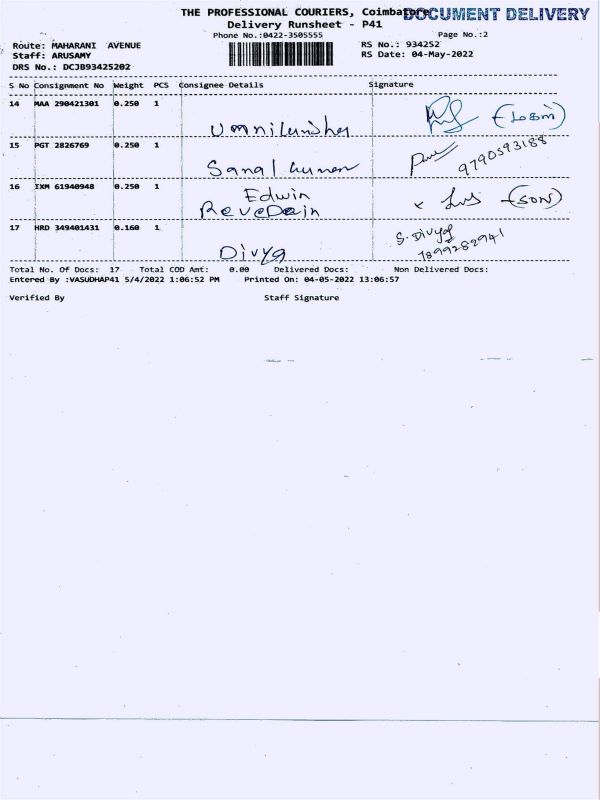 THE PROFESSIONAL COURIERS, Coimbatore
DOCUMENT DELIVERY
Delivery Runsheet - P41
Phone No.:0422-3505555
Page No.:2
Route: MAHARANI AVENUE
RS No.: 934252
Staff: ARUSAMY
RS Date: 04-May-2022
DRS No.: DCJB93425202
S No Consignment No Weight PCS Consignee Details Signature
14 MAA 290421301 0.250 1
15 PGT 2826769 0.250 1
Sanal kumar
9790593188
16 IXM 61940948 0.250 1
Edwin
(SON)
17 HRD 349401431 0.160 1
Divya
S. Divya
7899282941
Total No. Of Docs: 17 Total COD Amt: 0.00 Delivered Docs: Non Delivered Docs:
Entered By :VASUDHAP41 5/4/2022 1:06:52 PM Printed On: 04-05-2022 13:06:57
Verified By Staff Signature